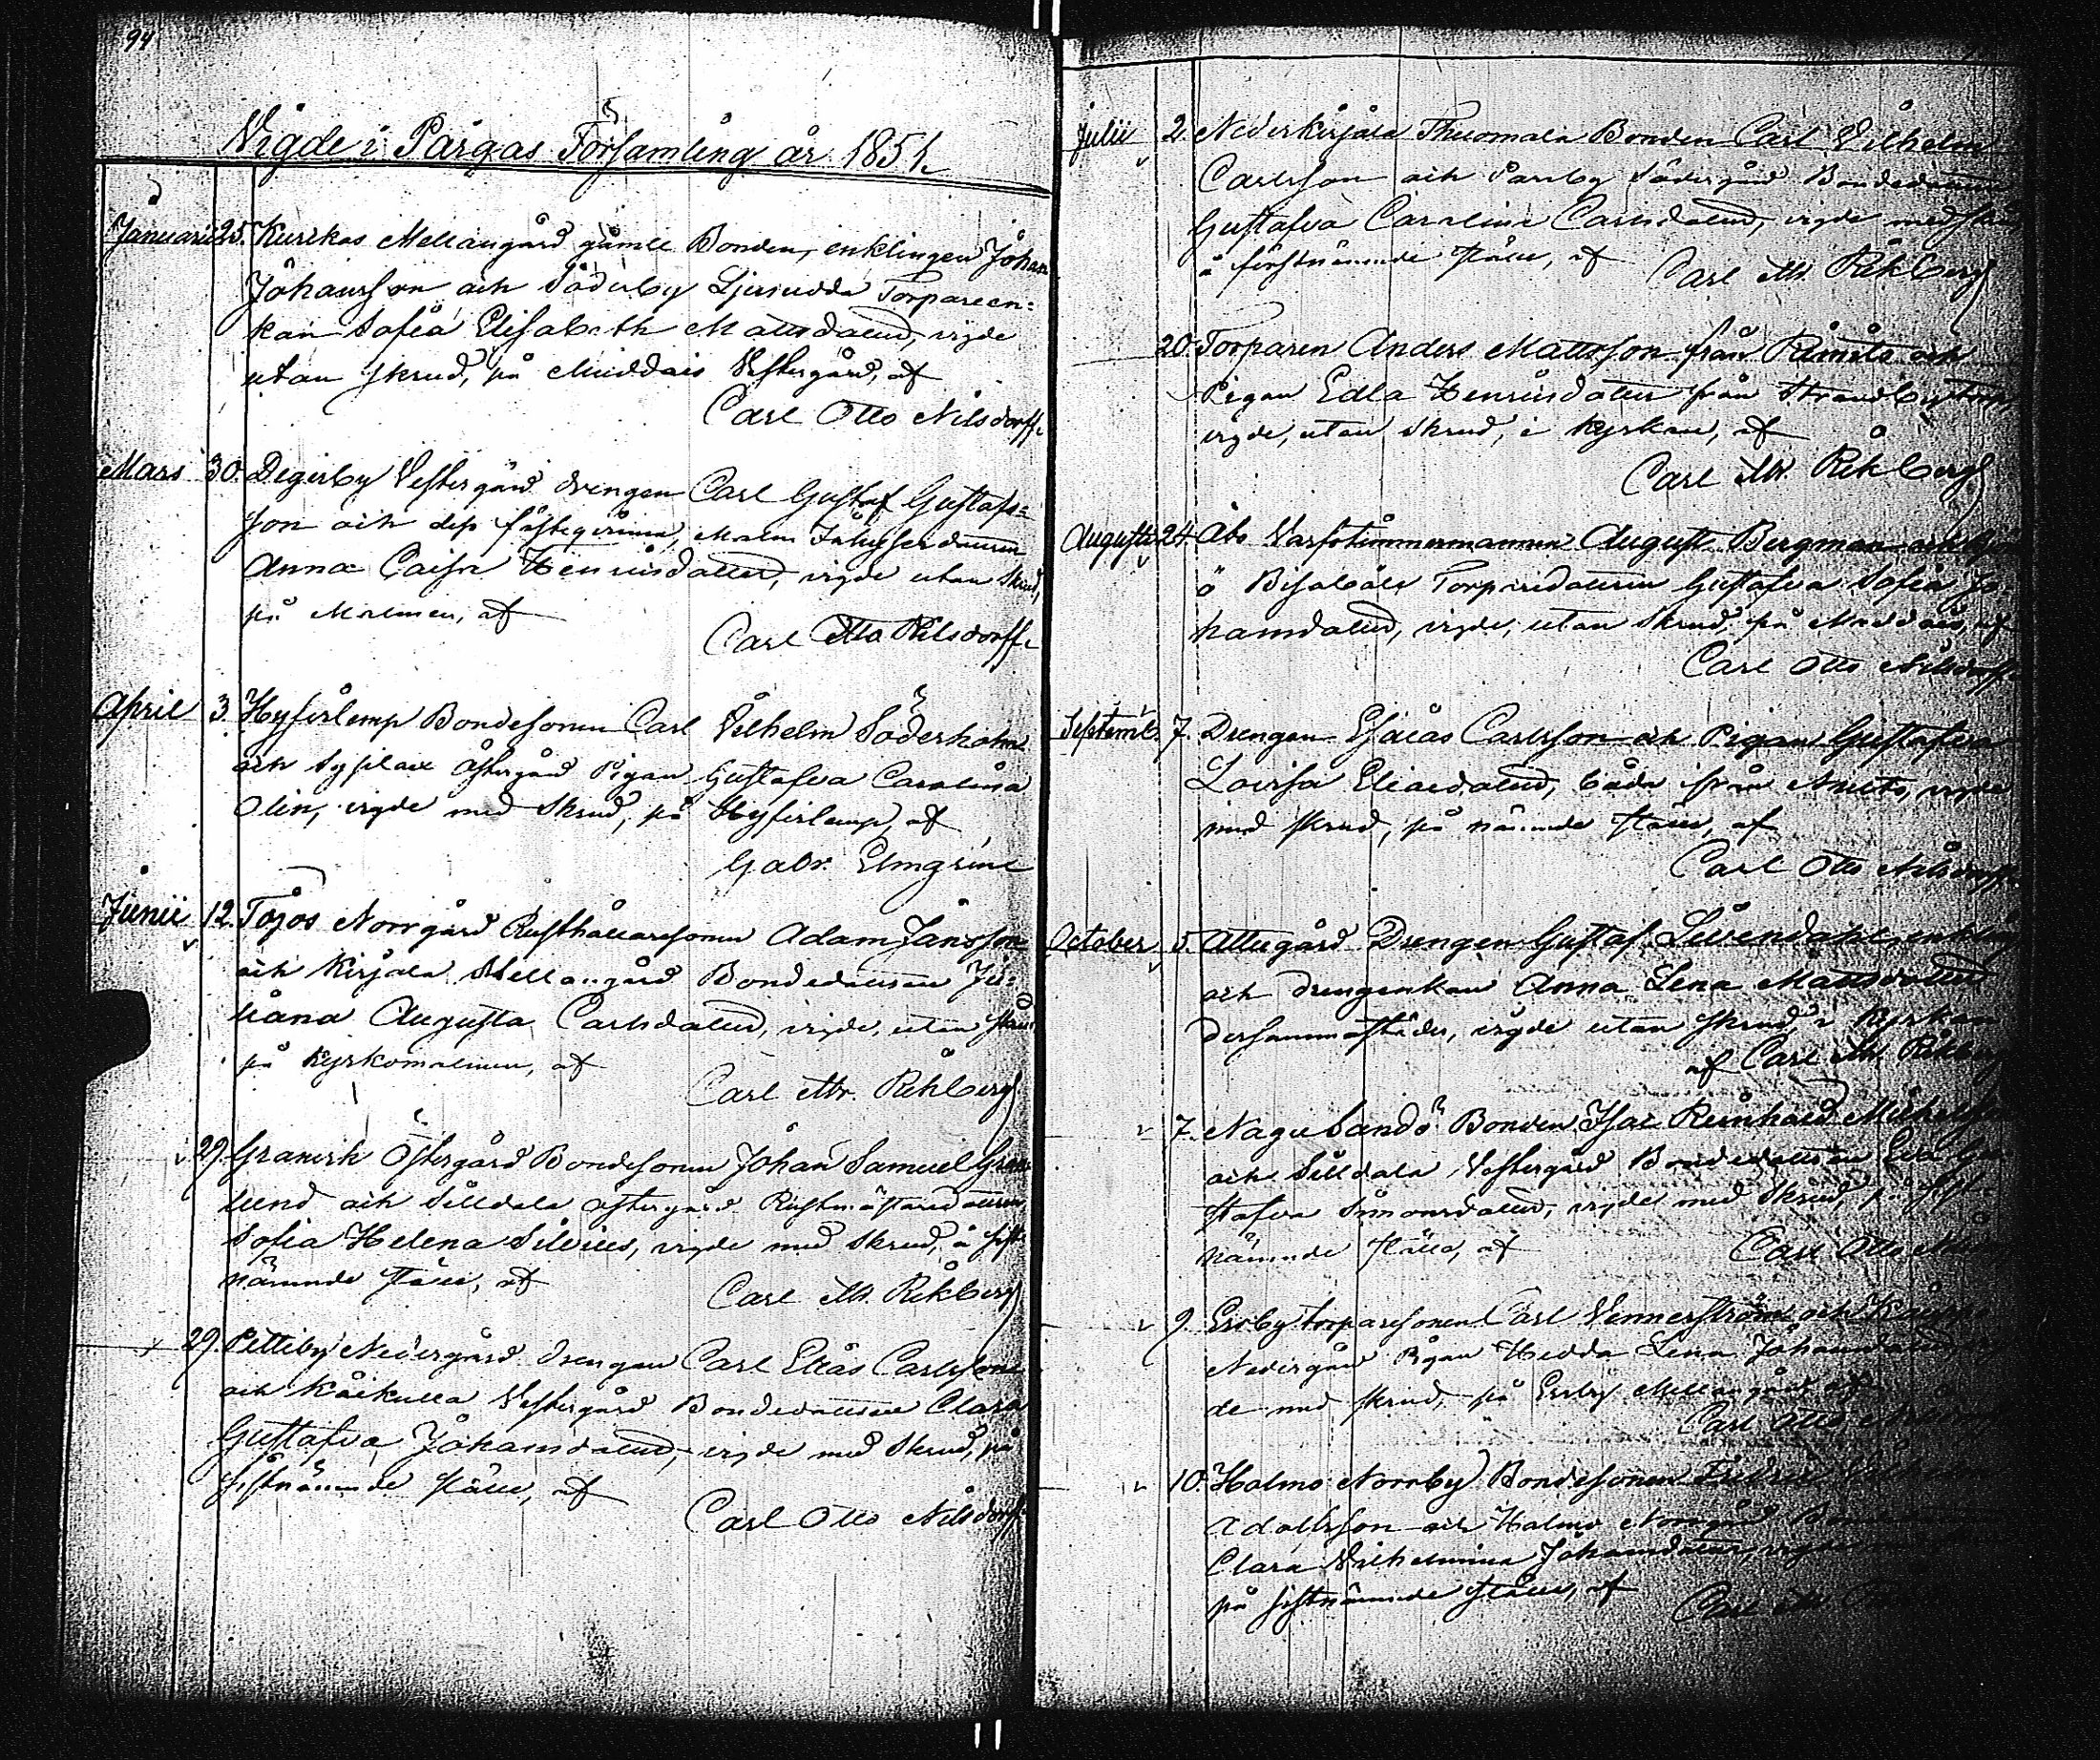 94
Vigde i Pargas Församling år 1851.
Januarii 25. Kurkas Mellangård gamle Bonden, enklingen Johan
Johansson och Söderby Ljusudda Torpareen-
kan Sofia Elisabeth Mattsdotter, vigde
utan skrud, på Muddais Vestergård, af
Carl Otto Nilsdorff.
Mars 30. Degerby Vestergård drengen Carl Gustaf Gustafs-
son och dess fästeqvinna, Malm
Anna Caisa Henricsdotter, vigde utan skrud,
på Malmen, af
Carl Otto Nilsdorff.
April 3. Hyfverlemp Bondesonen Carl Vilhelm Söderholm
och Sysilax Östergård Pigan Gustafva Carolina
Olin, vigde med skrud, på Hyfverlemp, af
Gabr. Elmgrène
Junii 12. Tojos Norrgård Rusthållaresonen Adam Jansson
och Kirjala Mellangård Bondedottren Ju-
liana Augusta Carlsdotter, vigde, utan skrud
på Kyrkomalmen, af
Carl M. Rehberg
29. Granvik Östergård Bondesonen Johan Samuel Gran-
lund och Silldala Östergård Rustmästaredottren
Sofia Helena Silvius, vigde med skrud, å sist-
nämnde ställe, af
Carl M. Rehberg
29. Pettiby Nedergård drengen Carl Elias Carlsson
och Kåikulla Vestergård Bondedottren Clara
Gustafva Johansdotter, vigde med skrud, på
sistnämnde ställe, af
Carl Otto Nilsdorff
Julii 2. Nederkirjala Bonden Carl Vilhelm
Carlsson och Parsby Södergård Bondedottren
Gustafva Carolina Carlsdotter, vigde med skrud
å förstnämnde ställe, af
Carl M. Rehberg
20. Torparen Anders Mattsson från Rimito och
Pigan Edla Henricsdotter från Strandby torp,
vigde, utan skrud, i kyrkan, af
Carl M. Rehberg
Augusti 24. Åbo Varfstimmermannen August Bergman och
ö Bisaböle Torparedottren Gustafva Sofia Jo-
hansdotter, vigde, utan skrud, på Muddais, af
Carl Otto Nilsdorff.
Septemb. 7. Drengen Esaias Carlsson och Pigan Gustafva
Lovisa Eliaedotter, båda från Attu, vigde
med skrud, på nämnde ställe, af
Carl Otto Nilsdorff
October 5. Attugård Drengen Gustaf Lövendahl, enkling
och drengenkan Anna Lena Mattsdotter
dersammastädes, vigde utan skrud, i Kyrkan
af Carl M. Rehberg
7. Nagu Sandö Bonden Isac Reinhard Michelsson
och Silldala Vestergård Bondedottren Eva Gu-
stafva Simonsdotter, vigde med skrud, på sist-
nämnde ställe, af
Carl Otto
9. Ersby torparesonen Carl Vennerström och
Nedergård Pigan Hedda Lena Johansdotter
de med skrud, på Ersby Mellangård, af
Carl Otto
10. Holmo Norrby Bondesonen Fredric
Adolfsson och Holmo Norrgård
Clara Vilhelmina Johansdotter, vigde
på sistnämnde ställe, af
Carl